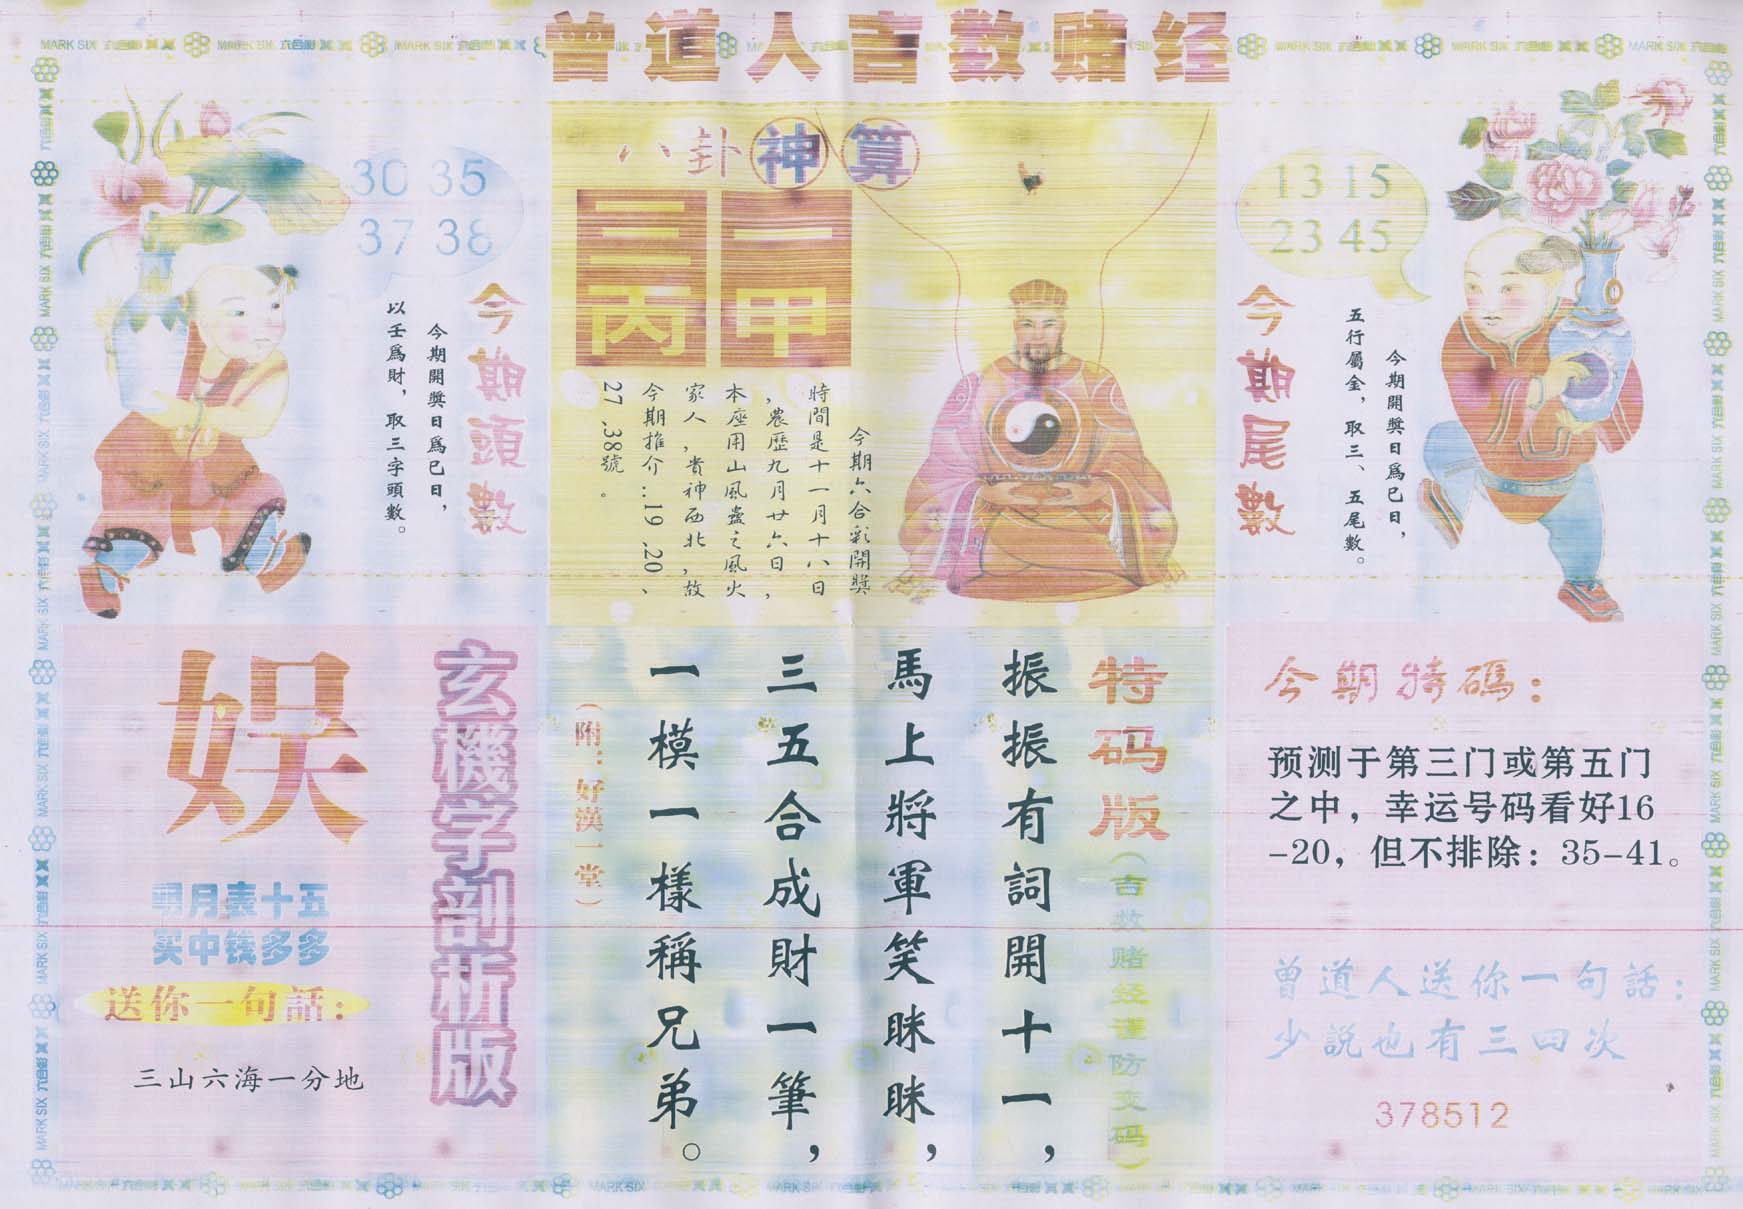 曾道人吉数赌经
30 35
37 38
今期頭數
今期開獎日爲巳日，
以壬爲財，取三字頭數。
八卦神算
三丙
一甲
今期六合彩開獎
時間是十一月十八日
，農歷九月廿六日，
本座用山風蠱之風火
家人，貴神西北，故
今期推介..19、20、
27、38號。
13 15
23 45
今期尾數
今期開獎日爲巳日，
五行屬金，取三、五尾數。
玄機字剖析版
娱
明月表十五
买中钱多多
送你一句話：
三山六海一分地
特码版（吉数赌经谨防变码）
振振有詞開十一，
馬上將軍笑眯眯，
三五合成財一筆，
一模一樣稱兄弟。
（附：好漢一堂）
今期特碼：
预测于第三门或第五门
之中，幸运号码看好16
-20，但不排除：35-41。
曾道人送你一句話：
少説也有三四次
378512
MARK SIX 六合彩